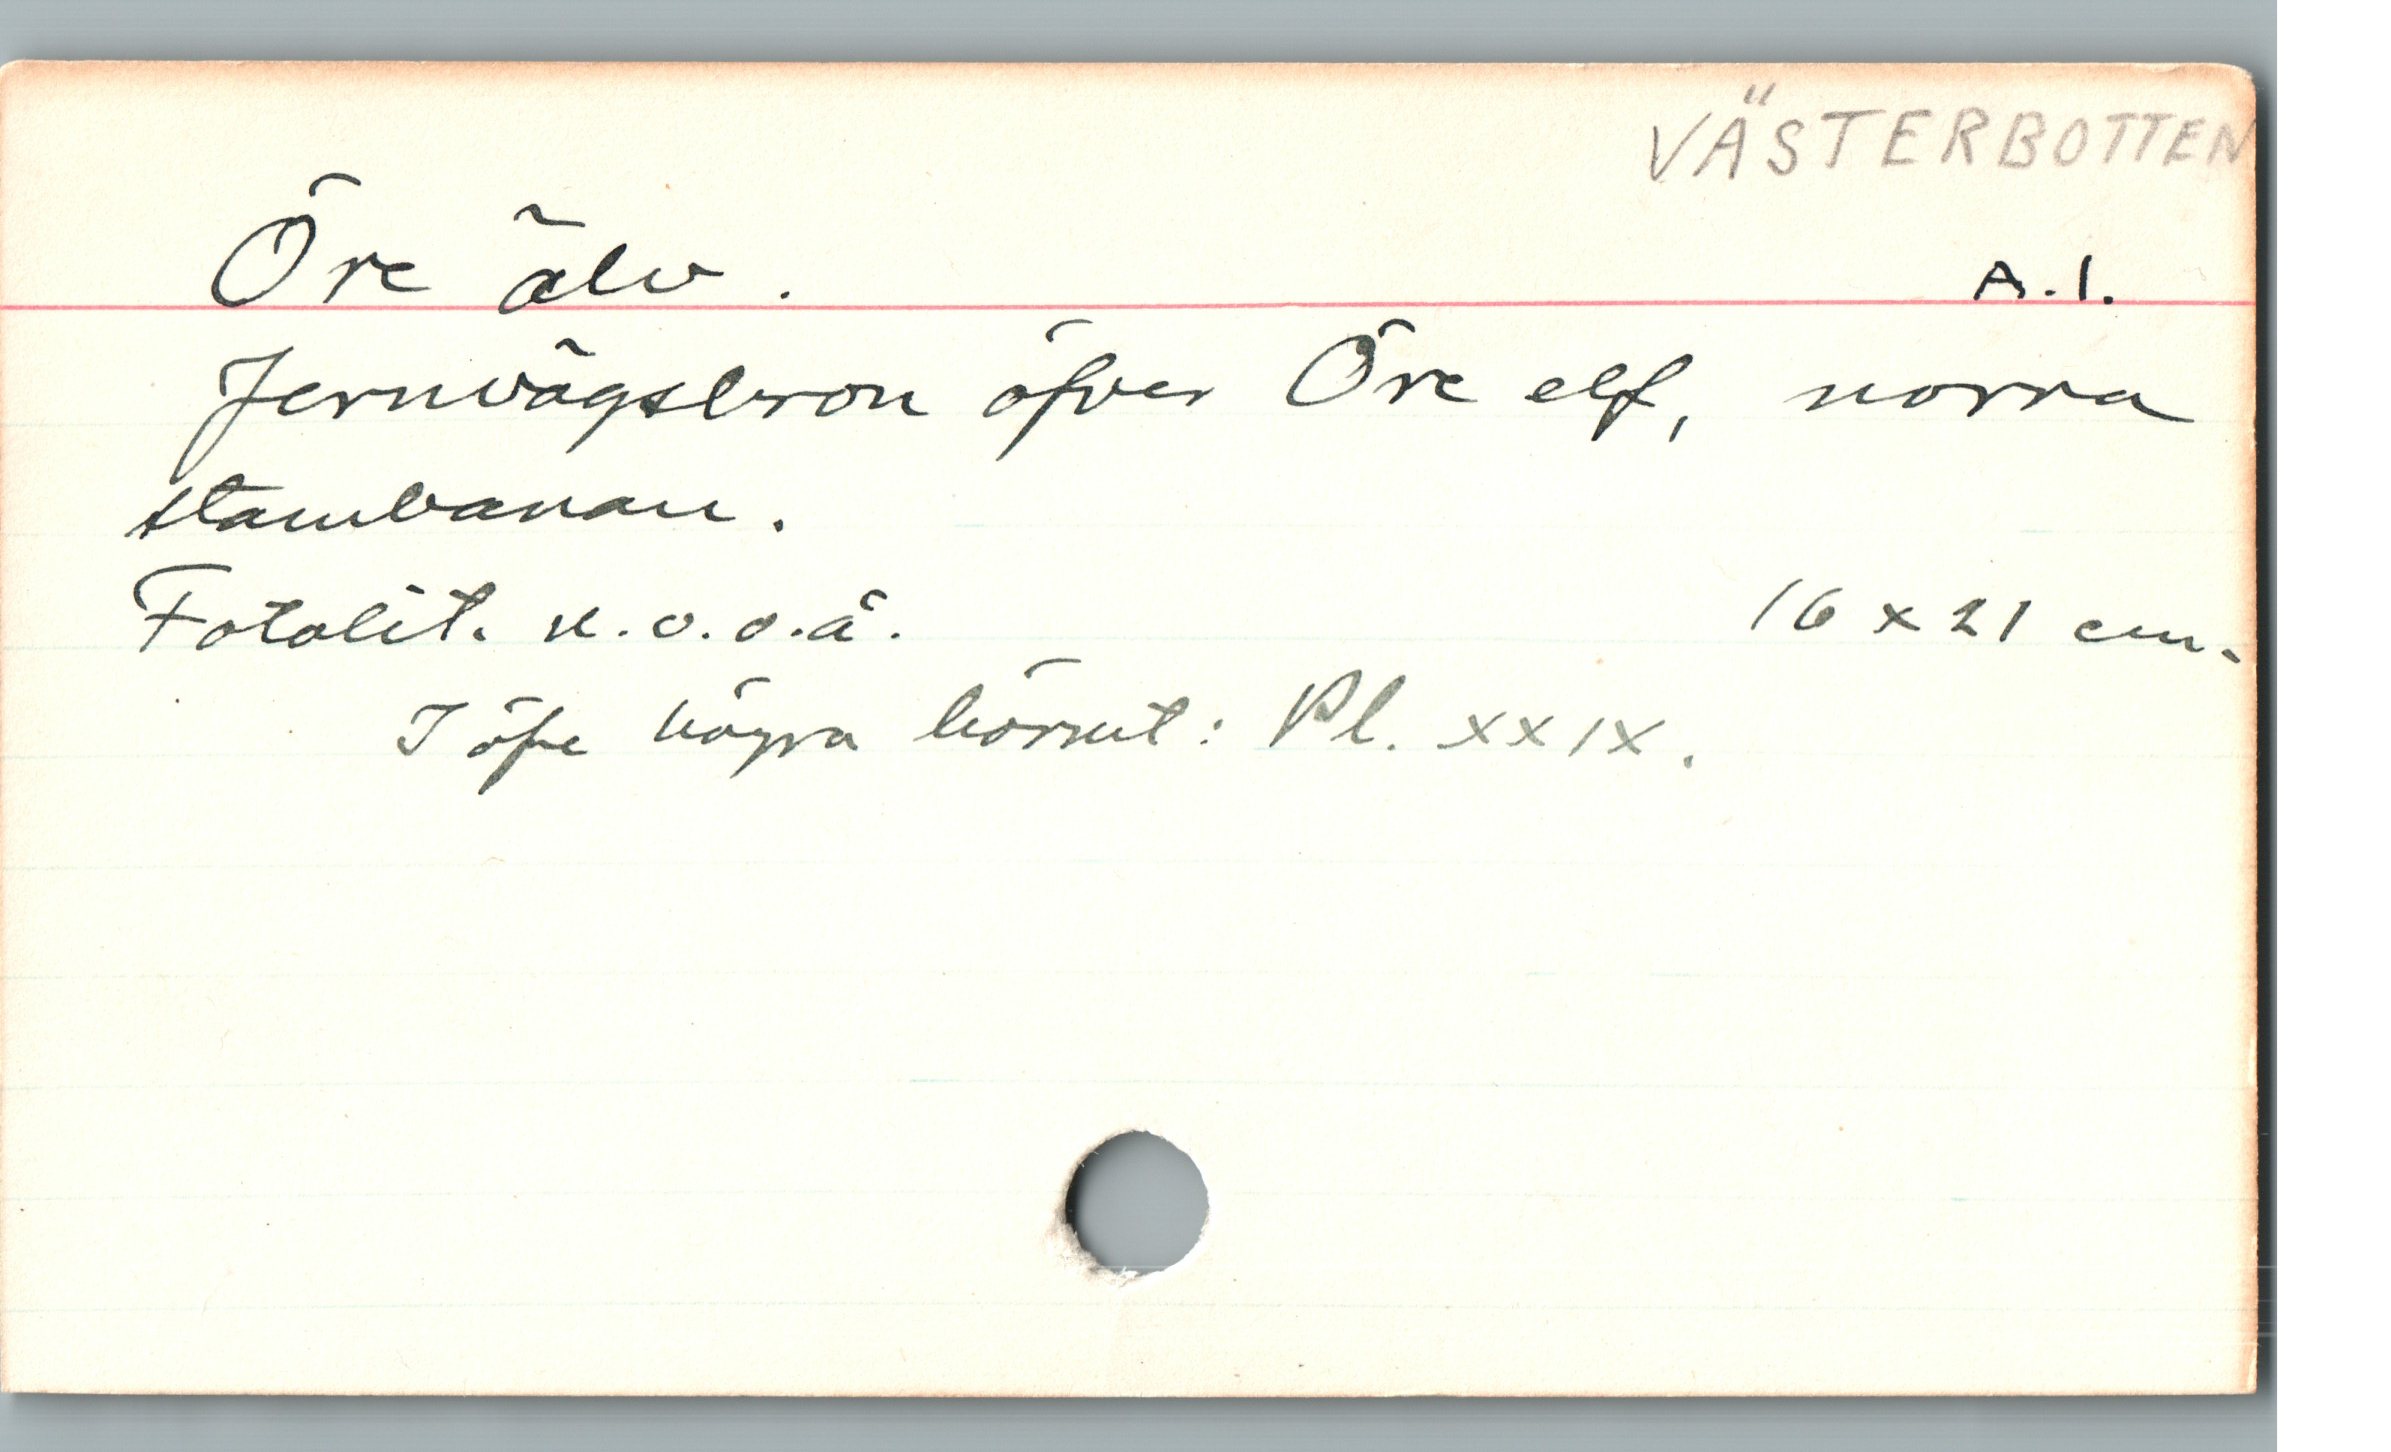 VÄSTERBOTTEN
Öre älv. A.1.
Jernvägsbron öfver Öre elf, norra
stambanan.
Fotolit. u.o.o.å. 16 x 21 cm.
I öfre högra hörnet: Pl. XXIX.